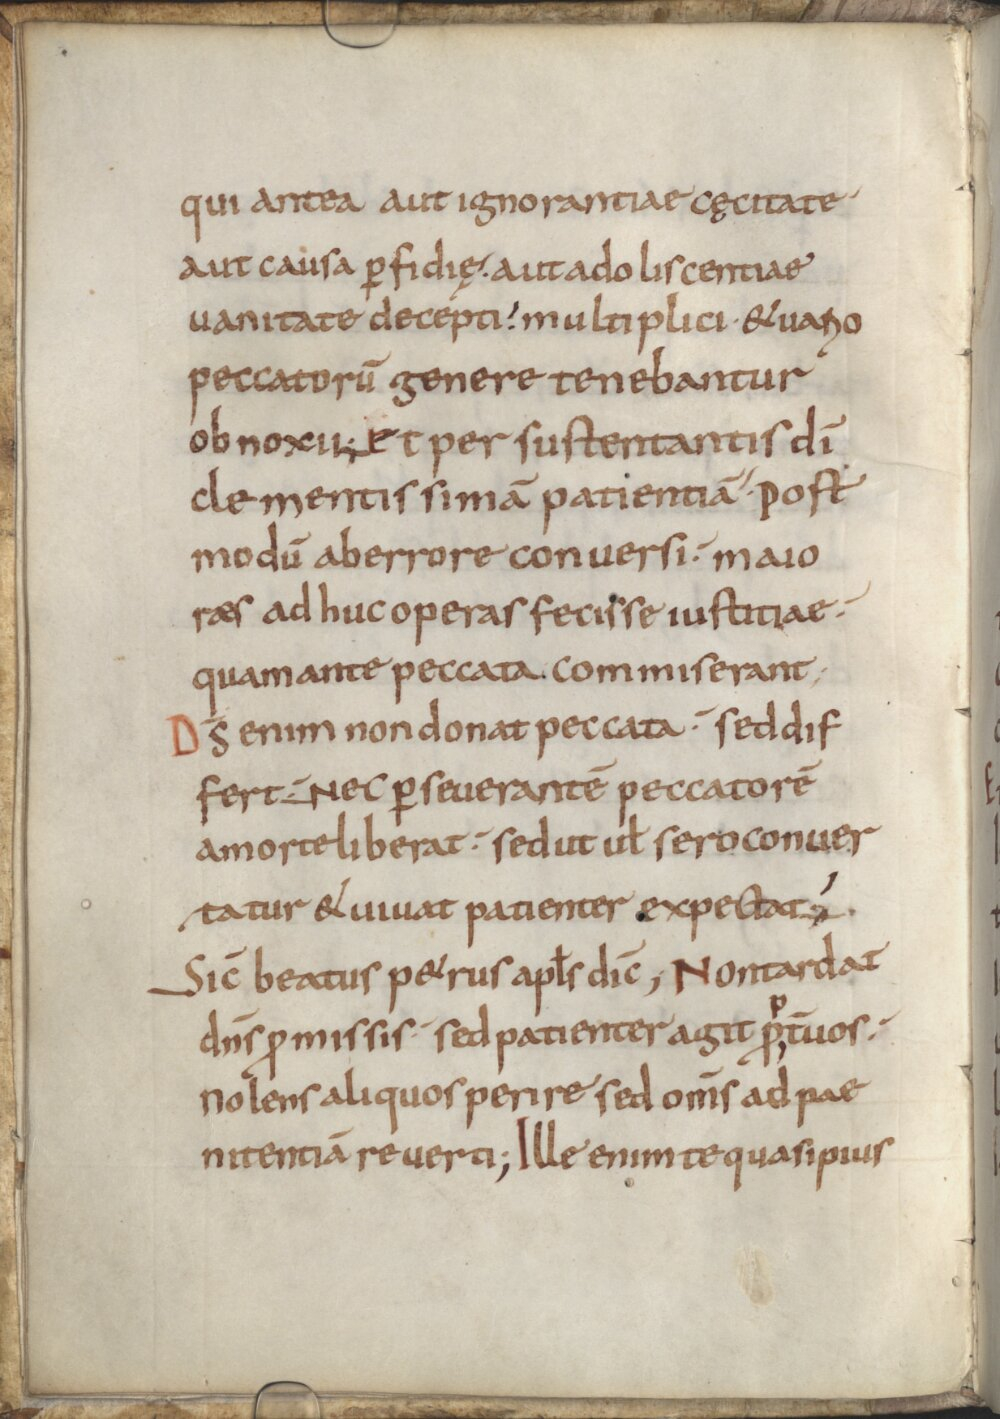 qui antea aut ignorantiae cęcitate
aut causa ꝑfidię. aut adoliscentiae
uanitate decepti. multiplici. & uario
peccatorū genere tenebantur
obnoxii; Et per sustentantis dī
clementissimā patientiā. post
modū ab errore conuersi. maio
ræs ad huc operas fecisse iustitiae.
quam ante peccata commiserant.
D̄s enim non donat peccata. sed dif
fert. Nec ꝑseuerantē peccatorē
a morte liberat. sed ut ul sero conuer
tatur & uiuat patienter expectat;
Sic̄ beatus p&rus apls dic̄; Non tardat
dn̄s ꝓmissis. sed patienter agit ꝓpt̄ uos.
nolens aliquos perire sed om̄s ad pae
nitentiā reuerti; Ille enim te quasi pius